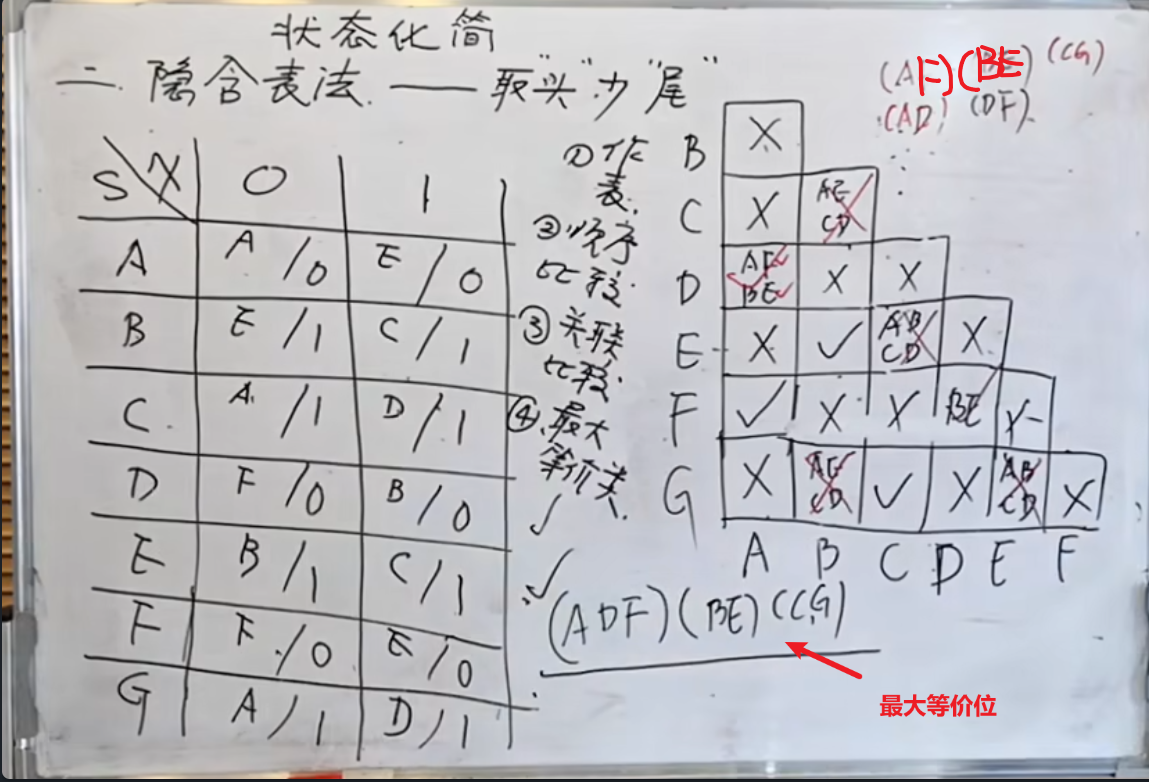 状态化简
二. 隐含表法. —— 取"头"少"尾"
(AF)(BE) (CG)
(AD) (DF).
①作表.
②顺序比较.
③关联比较.
④.最大等价类.
S X 0 1
A A/0 E/0
B E/1 C/1
C A/1 D/1
D F/0 B/0
E B/1 C/1
F F/0 E/0
G A/1 D/1
B X
C X AE CD
D AF BE X X
E X ✓ AB CD X
F ✓ X X BE X
G X AE CD ✓ X AB CD X
A B C D E F
(ADF)(BE)(CG)
最大等价位